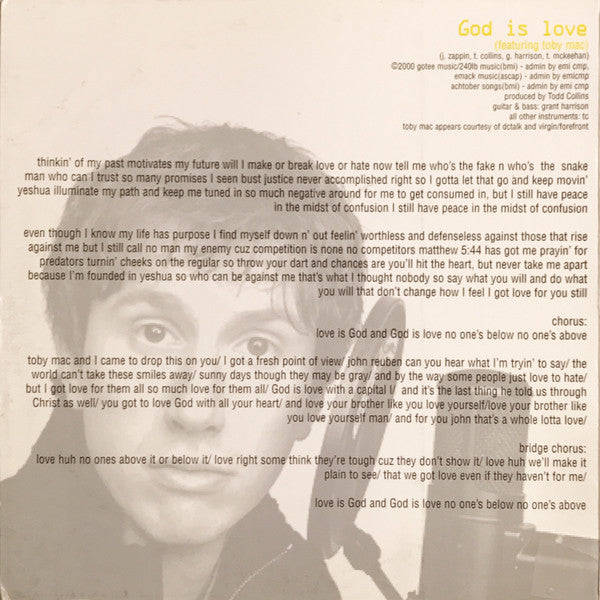 God is love
(featuring toby mac)
(j. zappin, t. collins, g. harrison, t. mckeehan)
©2000 gotee music/240lb music(bmi) - admin by emi cmp,
emack music(ascap) - admin by emicmp
achtober songs(bmi) - admin by emi cmp
produced by Todd Collins
guitar & bass: grant harrison
all other instruments: tc
toby mac appears courtesy of dctalk and virgin/forefront
thinkin' of my past motivates my future will I make or break love or hate now tell me who's the fake n who's the snake
man who can I trust so many promises I seen bust justice never accomplished right so I gotta let that go and keep movin'
yeshua illuminate my path and keep me tuned in so much negative around for me to get consumed in, but I still have peace
in the midst of confusion I still have peace in the midst of confusion
even though I know my life has purpose I find myself down n' out feelin' worthless and defenseless against those that rise
against me but I still call no man my enemy cuz competition is none no competitors matthew 5:44 has got me prayin' for
predators turnin' cheeks on the regular so throw your dart and chances are you'll hit the heart, but never take me apart
because I'm founded in yeshua so who can be against me that's what I thought nobody so say what you will and do what
you will that don't change how I feel I got love for you still
chorus:
love is God and God is love no one's below no one's above
toby mac and I came to drop this on you/ I got a fresh point of view/ john reuben can you hear what I'm tryin' to say/ the
world can't take these smiles away/ sunny days though they may be gray/ and by the way some people just love to hate/
but I got love for them all so much love for them all/ God is love with a capital l/ and it's the last thing he told us through
Christ as well/ you got to love God with all your heart/ and love your brother like you love yourself/love your brother like
you love yourself man/ and for you john that's a whole lotta love/
bridge chorus:
love huh no ones above it or below it/ love right some think they're tough cuz they don't show it/ love huh we'll make it
plain to see/ that we got love even if they haven't for me/
love is God and God is love no one's below no one's above